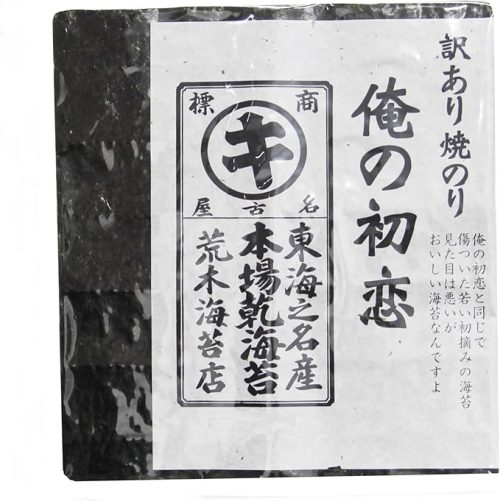 訳あり焼のり
俺の初恋
俺の初恋と同じで
傷ついた若い初摘みの海苔
見た目は悪いが
おいしい海苔なんですよ
商標
キ
名古屋
東海之名産
本場乾海苔
荒木海苔店